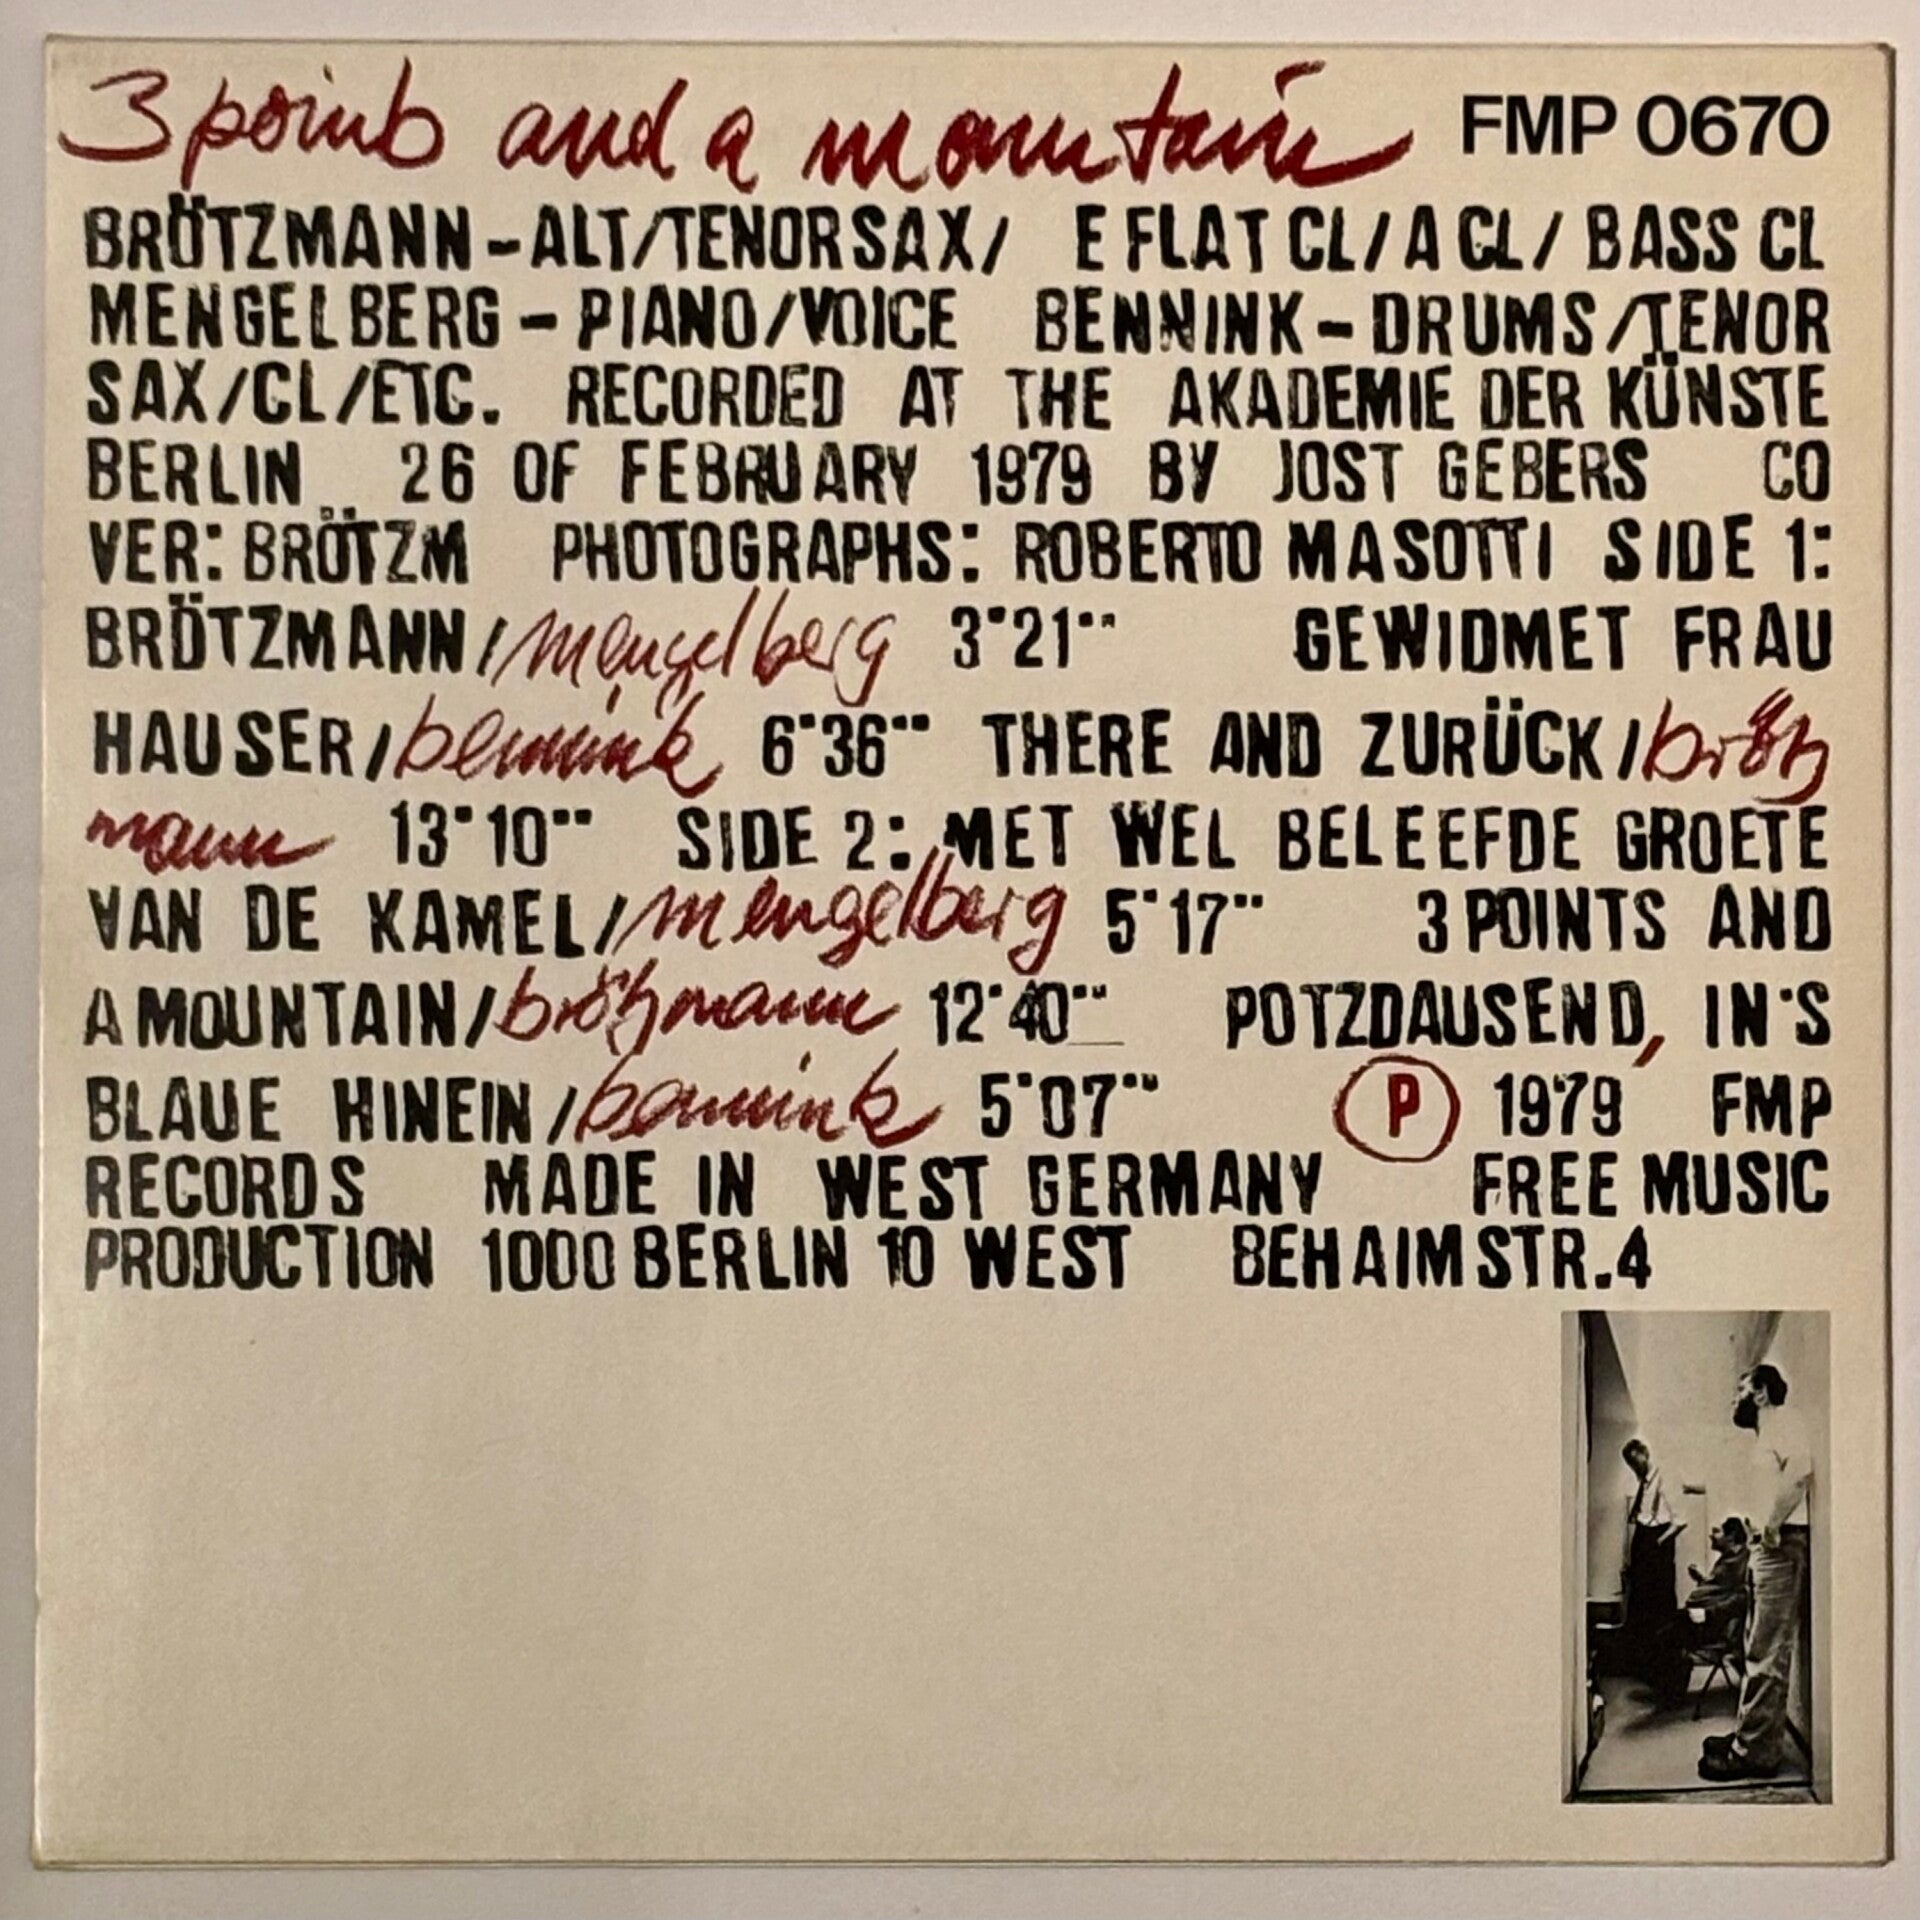 3 points and a mountain FMP 0670
BRÖTZMANN-ALT/TENORSAX/ E FLAT CL/A CL/ BASS CL
MENGELBERG-PIANO/VOICE BENNINK-DRUMS/TENOR
SAX/CL/ETC. RECORDED AT THE AKADEMIE DER KÜNSTE
BERLIN 26 OF FEBRUARY 1979 BY JOST GEBERS CO
VER: BRÖTZM PHOTOGRAPHS: ROBERTO MASOTTI SIDE 1:
BRÖTZMANN/mengelberg 3'21'' GEWIDMET FRAU
HAUSER/bennink 6'36'' THERE AND ZURÜCK/brötz
mann 13'10'' SIDE 2: MET WEL BELEEFDE GROETE
VAN DE KAMEL/mengelberg 5'17'' 3 POINTS AND
A MOUNTAIN/brötzmann 12'40'' POTZDAUSEND, IN'S
BLAUE HINEIN/bennink 5'07'' Ⓟ 1979 FMP
RECORDS MADE IN WEST GERMANY FREE MUSIC
PRODUCTION 1000 BERLIN 10 WEST BEHAIMSTR.4